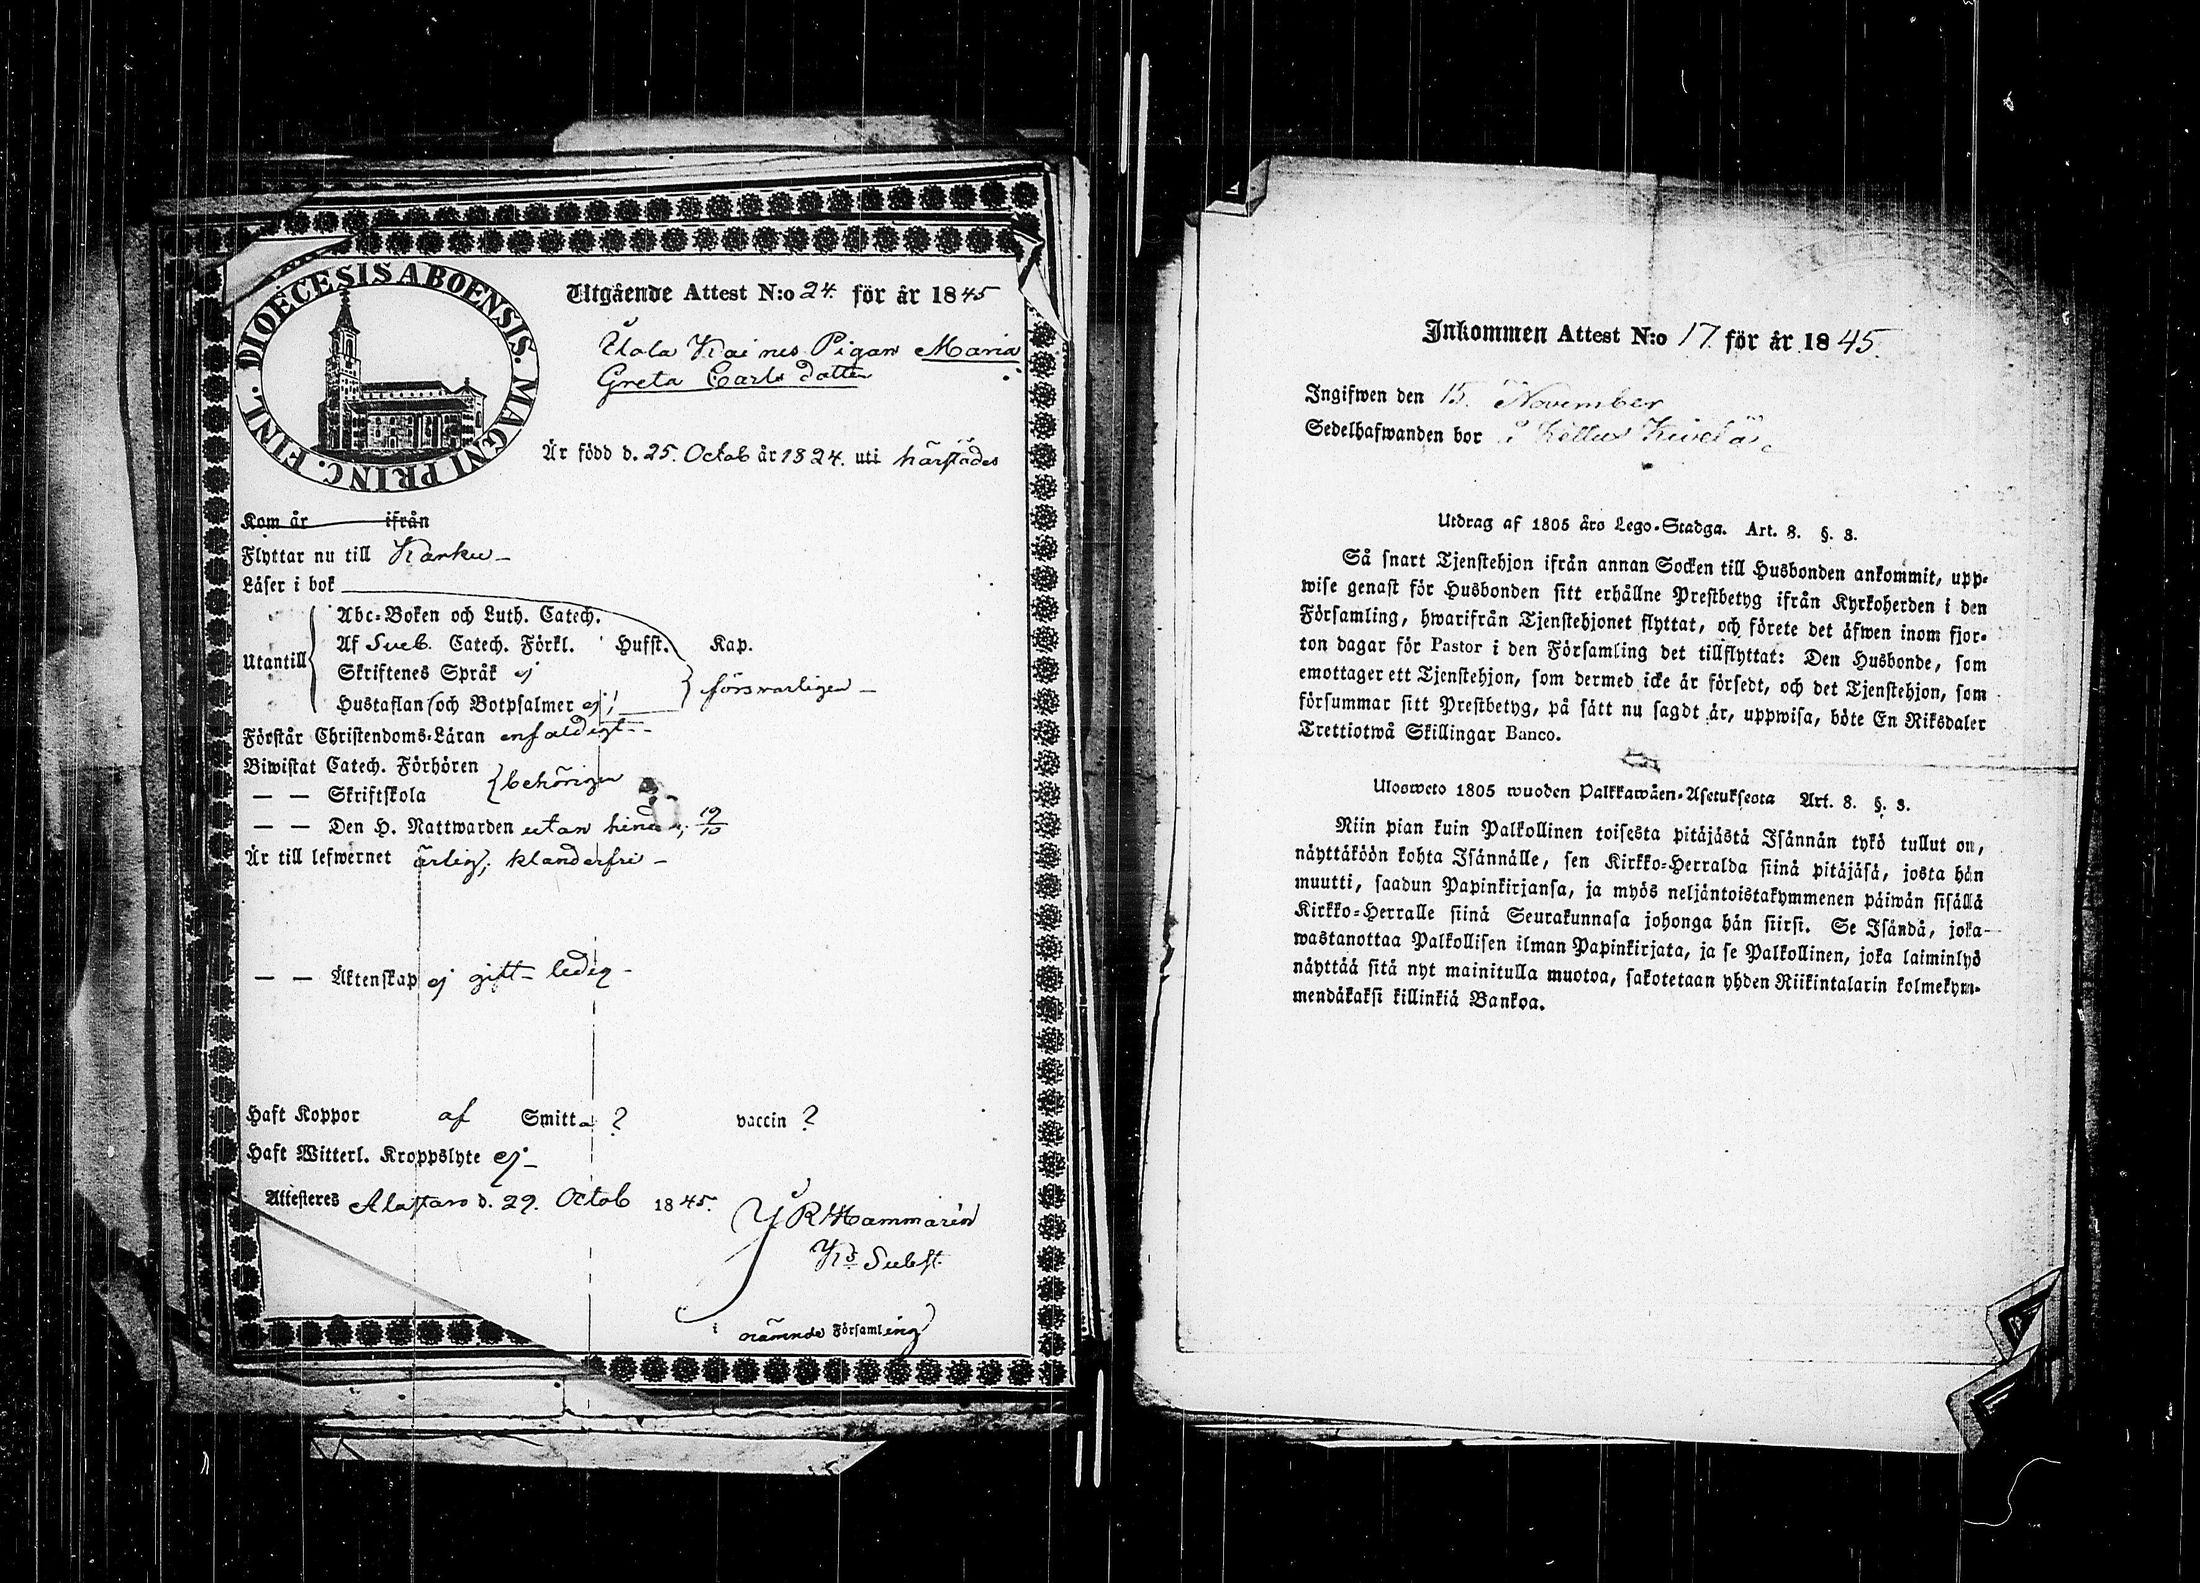 DIOECESIS ABOENSIS. MAGNI PRINC. FINL.
Utgående Attest N:o 24. för år 1845
Uola Kaines Pigan Maria
Greta Carls dotter
Är född d. 25. Octob år 1824. uti härstädes
Kom år ifrån
Flyttar nu till Karku –
Läser i bok
Abc-Boken och Luth. Catech.
Af Sveb. Catech. Förkl. Husst. Kap.
Utantill
Skriftenes Språk ej
försvarligen –
Hustaflan (och Botpsalmer ej;
Förstår Christendoms-Läran enfaldigt –
Biwistat Catech. Förhören
behörigen
— — Skriftskola
— — Den H. Nattwarden utan hinder, 19/10
Är till lefwernet ärlig; klanderfri –
— — Äktenskap ej gift – ledig –
Haft Koppor af Smitta ? vaccin ?
Haft Witterl. Kroppslyte ej –
Attesteres Alastaro d. 29. Octob 1845.
Hammarén
Subst.
i nämnde Församling
Inkommen Attest N:o 17. för år 1845.
Ingifwen den 15. November
Sedelhafwanden bor
Utdrag af 1805 års Lego-Stadga. Art. 8. §. 3.
Så snart Tjenstehjon ifrån annan Socken till Husbonden ankommit, upp-
wise genast för Husbonden sitt erhållne Prestbetyg ifrån Kyrkoherden i den
Församling, hwarifrån Tjenstehjonet flyttat, och förete det äfwen inom fjor-
ton dagar för Pastor i den Församling det tillflyttat: Den Husbonde, som
emottager ett Tjenstehjon, som dermed icke är försedt, och det Tjenstehjon, som
försummar sitt Prestbetyg, på sätt nu sagdt är, uppwisa, böte En Riksdaler
Trettiotwå Skillingar Banco.
Ulosweto 1805 wuoden Palkkawäen-Asetuksesta Art. 8. §. 3.
Niin pian kuin Palkollinen toisesta pitäjästä Isännän tykö tullut on,
näyttäköön kohta Isännälle, sen Kirkko-Herralda siinä pitäjäsä, josta hän
muutti, saadun Papinkirjansa, ja myös neljäntoistakymmenen päiwän sisällä
Kirkko-Herralle siinä Seurakunnasa johonga hän siirsi. Se Isändä, joka
wastanottaa Palkollisen ilman Papinkirjata, ja se Palkollinen, joka laiminlyö
näyttää sitä nyt mainitulla muotoa, sakotetaan yhden Riikintalarin kolmekym-
mendäkaksi killinkiä Bankoa.